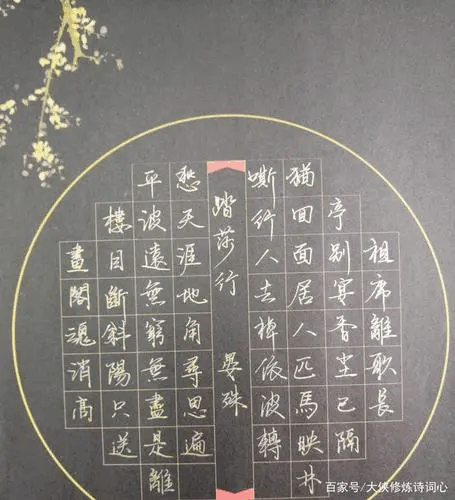 踏莎行
晏殊
祖席離歌長
亭別宴香塵已隔
猶回面居人匹馬映林
嘶行人去棹依波轉
畫閣魂消高
樓目斷斜陽只送
平波遠無窮無盡是離
愁天涯地角尋思遍
百家号/大侠修炼诗词心